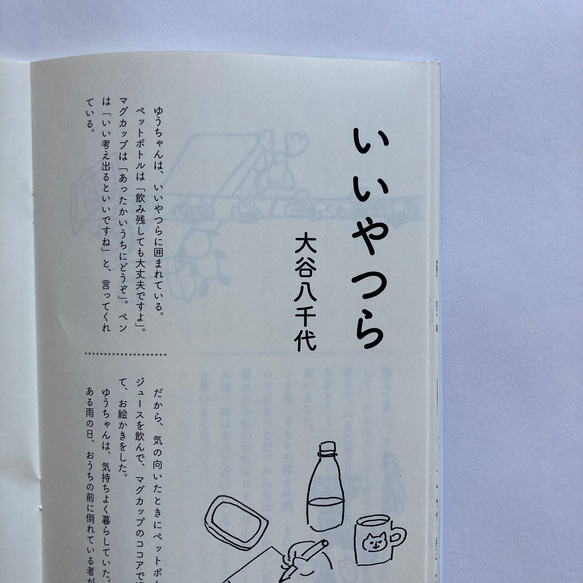 いいやつら
大谷八千代
ゆうちゃんは、いいやつらに囲まれている。
ペットボトルは「飲み残しても大丈夫ですよ」。
マグカップは「あったかいうちにどうぞ」。ペン
は「いい考え出るといいですね」と、言ってくれ
ている。
だから、気の向いたときにペットボ
ジュースを飲んで、マグカップのココアで
て、お絵かきをした。
ゆうちゃんは、気持ちよく暮らしていた。
ある雨の日、おうちの前に倒れている者が